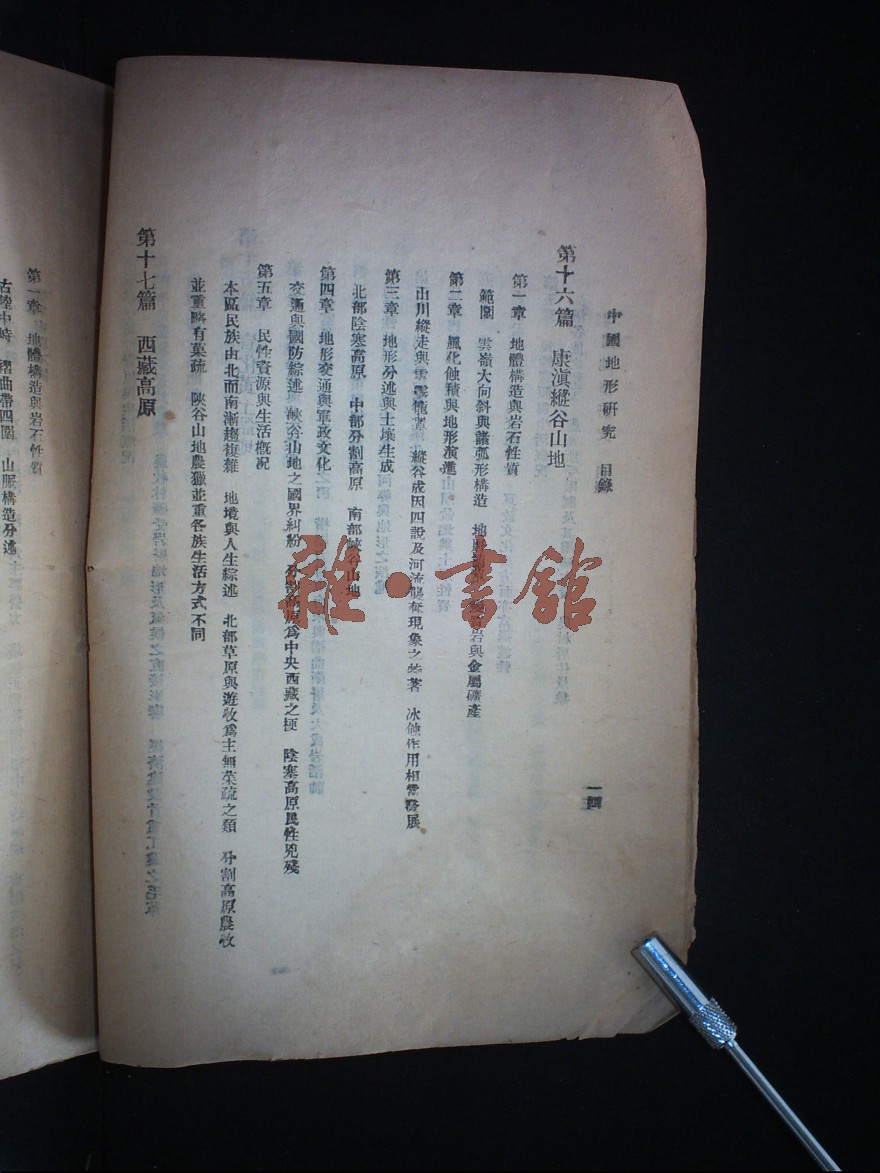 中國地形研究 目錄
一四
第十六篇 康滇縱谷山地
第一章 地體構造與岩石性質
範圍 雲嶺大向斜與諸弧形構造 地 岩與金屬礦產
第二章 風化蝕積與地形演進
山川縱走與 縱谷成因四說及河流襲奪現象之 著 冰蝕作用相當發展
第三章 地形分述與土壤生成
北部陰塞高原 中部分割高原 南部峽谷山地
第四章 地形交通與軍政文化
交通與國防綜述 峽谷山地之國界糾紛 分割高原爲中央西藏之梗 陰塞高原民性兇殘
第五章 民性資源與生活概況
本區民族由北而南漸趨複雜 地境與人生綜述 北部草原與遊牧爲主無菜疏之類 分割高原農牧
並重略有菓疏 陝谷山地農獵並重各族生活方式不同
第十七篇 西藏高原
第一章 地體構造與岩石性質
古陸中峙 褶曲帶四圍 山脈構造分述
雜·書館